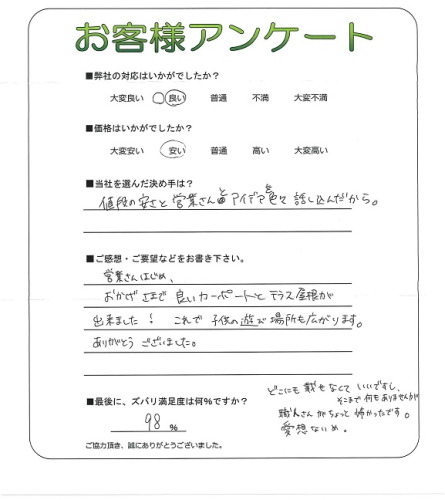 お客様アンケート
■弊社の対応はいかがでしたか?
大変良い 良い 普通 不満 大変不満
■価格はいかがでしたか?
大変安い 安い 普通 高い 大変高い
■当社を選んだ決め手は?
値段の安さと営業さんとアイデア色々話し込んだから。
■ご感想・ご要望などをお書き下さい。
営業さんはじめ、
おかげさまで良いカーポートとテラス屋根が
出来ました! これで子供の遊ぶ場所も広がります。
ありがとうございました。
どこにも載せなくていいですし、
そこまで何もありませんが
職人さんがちょっと怖かったです。
愛想ないめ。
■最後に、ズバリ満足度は何%ですか?
98 %
ご協力頂き、誠にありがとうございました。